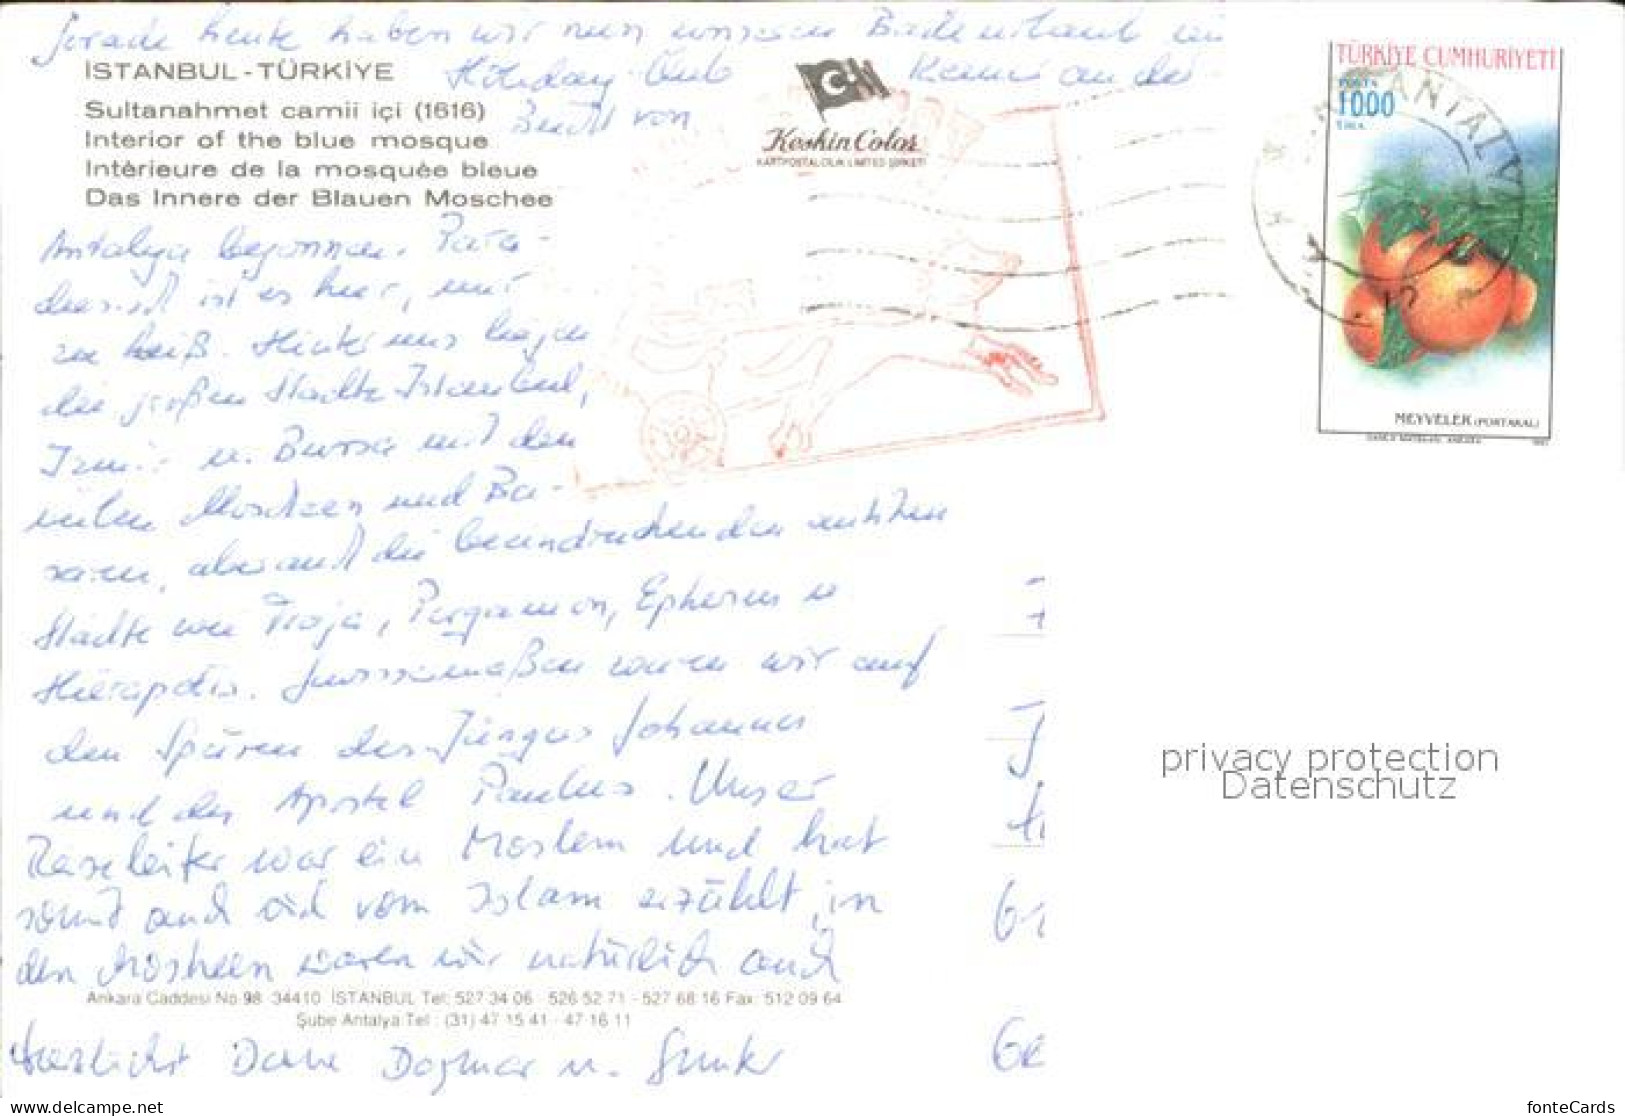 Gerade heute haben wir nun unseren Badeurlaub im
Holiday Club Kemi an der
Bucht von
İSTANBUL-TÜRKİYE
Sultanahmet camii içi (1616)
Interior of the blue mosque
Intèrieure de la mosquée bleue
Das Innere der Blauen Moschee
Keskin Color
KARTPOSTALCILIK LIMITED ŞİRKETİ
TÜRKİYE CUMHURİYETİ
POSTA
1000
LİRA
ANTALYA
MEYVELER (PORTAKAL)
Antalya begonnen. Para-
diesisch ist es hier, nur
zu heiß. Hinter uns liegen
die großen Städte Istanbul,
Izmir u. Bursa mit den
vielen Moscheen und Ba-
saren, aber auch die beeindruckenden antiken
Städte wie Troja, Pergamon, Ephesus u
Hierapolis. Gewissermaßen waren wir auf
den Spuren des Jüngers Johannes
und des Apostel Paulus. Unser
Reiseleiter war ein Moslem und hat
somit auch viel vom Islam erzählt, in
den Moscheen waren wir natürlich auch
Ankara Caddesi No 98 34410 İSTANBUL Tel: 527 34 06 - 526 52 71 - 527 68 16 Fax: 512 09 64
Şube Antalya Tel: (31) 47 15 41 - 47 16 11
Herzlichst Dagmar u.
privacy protection
Datenschutz
delcampe.net
fonteCards